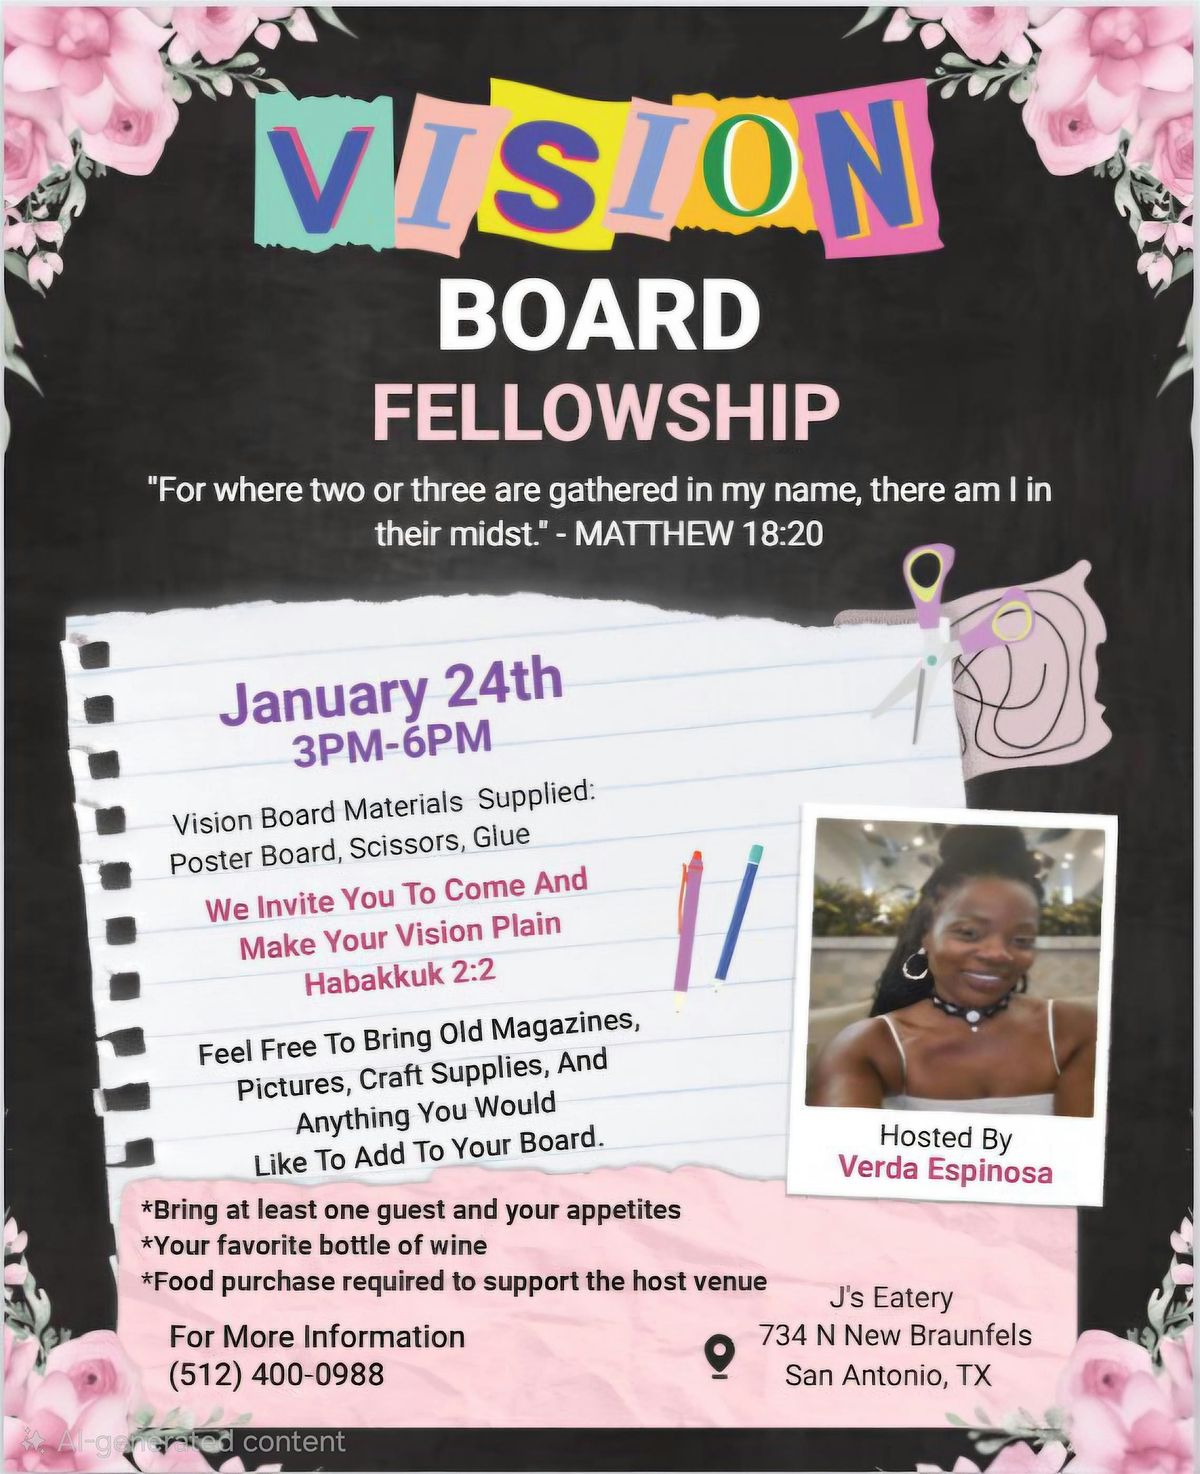 VISION
BOARD
FELLOWSHIP
"For where two or three are gathered in my name, there am I in
their midst." - MATTHEW 18:20
January 24th
3PM-6PM
Vision Board Materials Supplied:
Poster Board, Scissors, Glue
We Invite You To Come And
Make Your Vision Plain
Habakkuk 2:2
Feel Free To Bring Old Magazines,
Pictures, Craft Supplies, And
Anything You Would
Like To Add To Your Board.
Hosted By
Verda Espinosa
*Bring at least one guest and your appetites
*Your favorite bottle of wine
*Food purchase required to support the host venue
For More Information
(512) 400-0988
J's Eatery
734 N New Braunfels
San Antonio, TX
AI-generated content